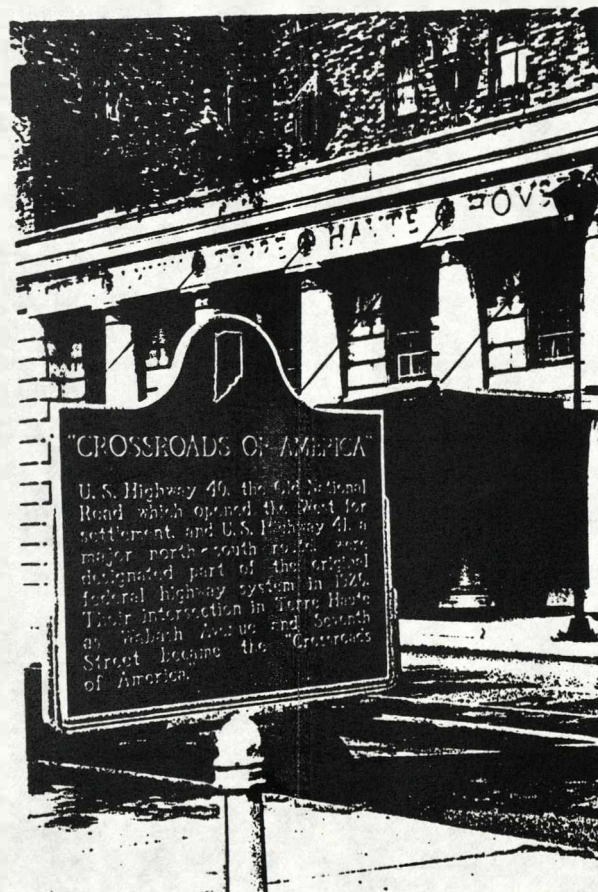 TERRE HAUTE HOUS
"CROSSROADS OF AMERICA"
U.S. Highway 40, the Old National
Road which opened the West for
settlement, and U.S. Highway 41, a
major north-south route were
designated part of the original
federal highway system in 1926.
Their intersection in Terre Haute
at Wabash Avenue and Seventh
Street became the "Crossroads
of America.